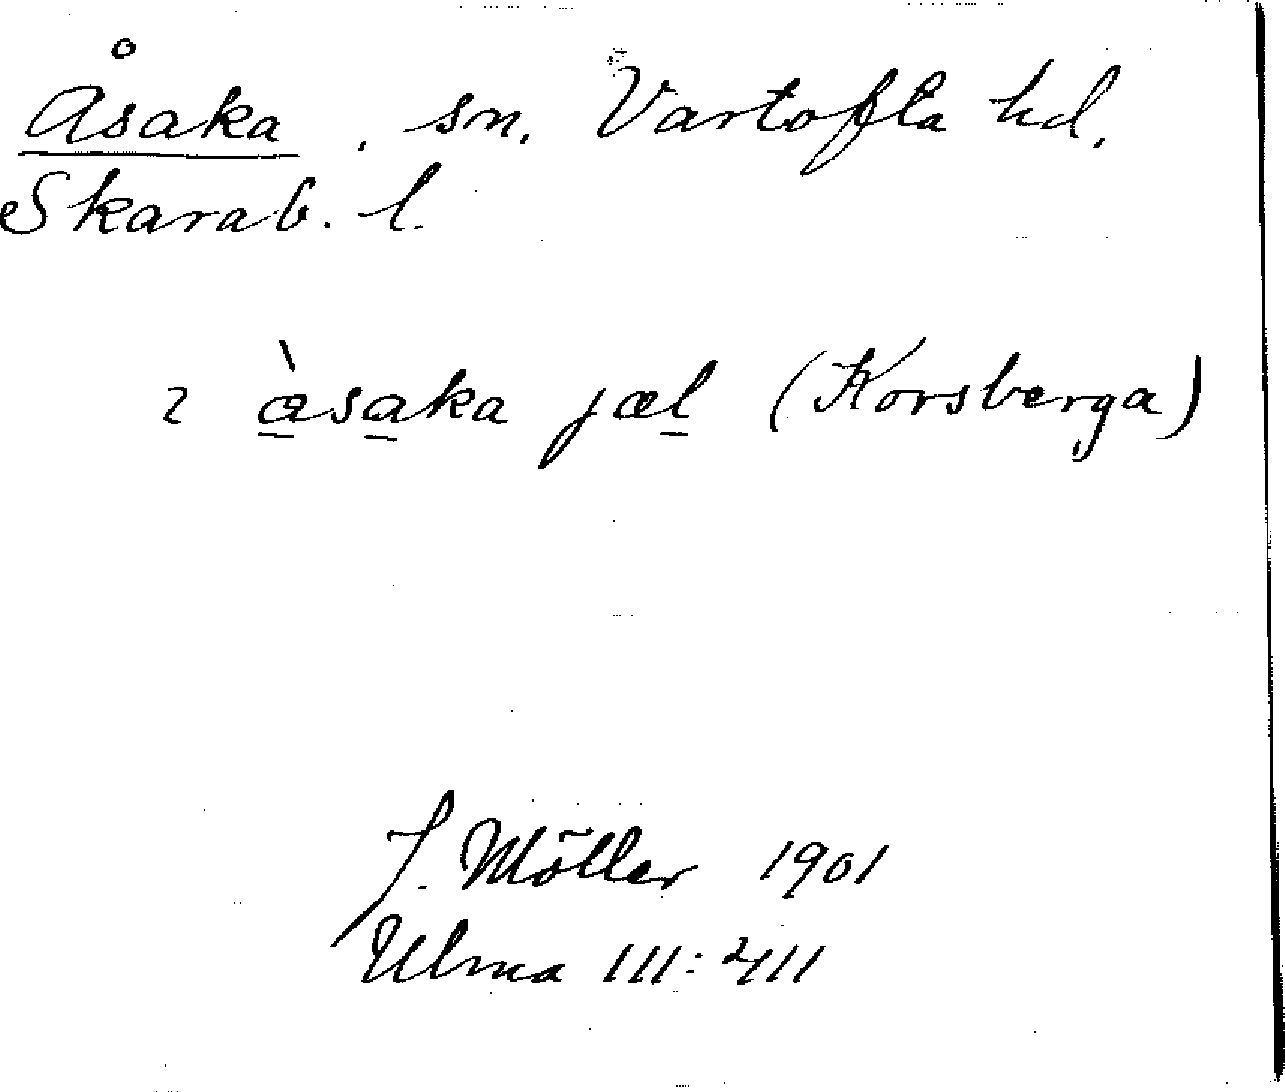 Åsaka, sn. Vartofta hd.
Skarab. l.
ɿ æ̀saka jæl (Korsberga)
J. Möller 1901
Ulma 111:411